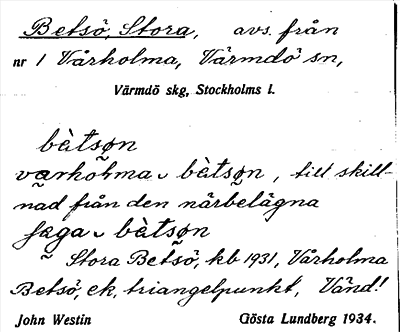 Betsö, Stora, avs. från
nr 1 Vårholma, Värmdö sn,
Värmdö skg, Stockholms l.
bètsøn
vārhoḷma ᴗ bètsøn, till skill-
nad från den närbelägna
faga ᴗ bètsøn
Stora Betsö, kb 1931, Vårholma
Betsö, ek, triangelpunkt, Vänd!
John Westin Gösta Lundberg 1934.